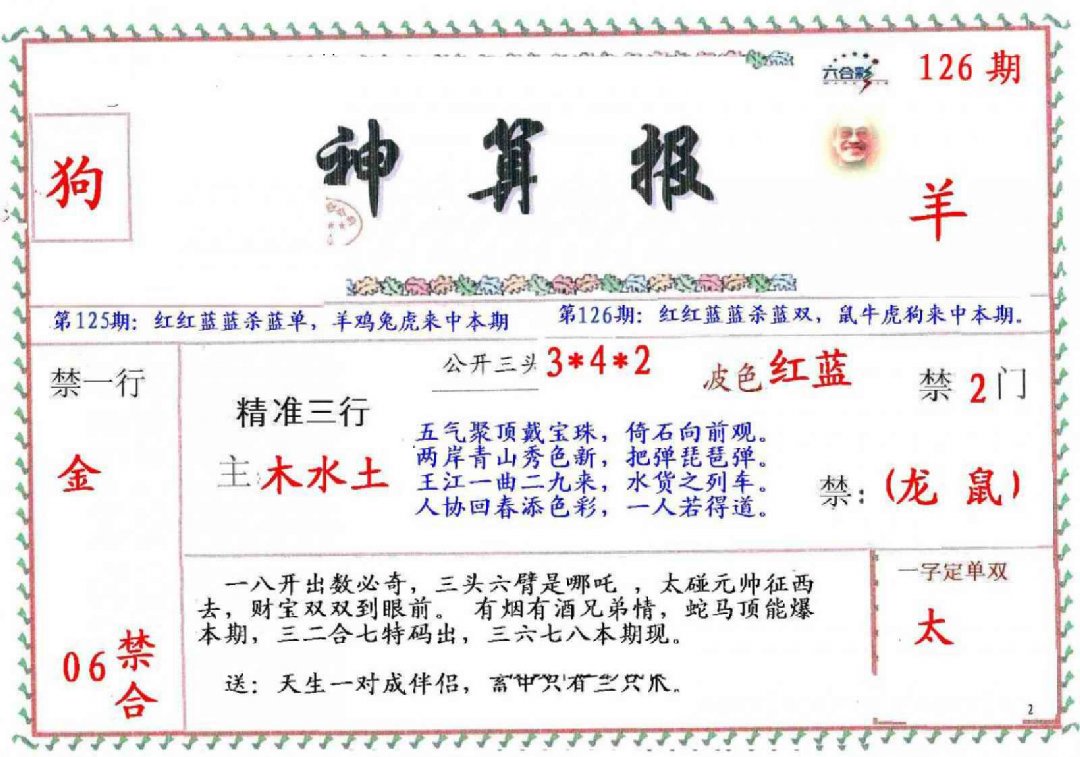 六合彩
126 期
狗
神 算 报
羊
第125期：红红蓝蓝杀蓝单，羊鸡兔虎来中本期
第126期：红红蓝蓝杀蓝双，鼠牛虎狗来中本期。
禁一行
金
06 禁合
精准三行
主:木水土
公开三头 3*4*2
波色 红蓝
五气聚顶戴宝珠，倚石向前观。
两岸青山秀色新，把弹琵琶弹。
王江一曲二九来，水货之列车。
人协回春添色彩，一人若得道。
禁 2 门
禁：(龙 鼠)
一八开出数必奇，三头六臂是哪吒 ，太碰元帅征西
去，财宝双双到眼前。 有烟有酒兄弟情，蛇马顶能爆
本期，三二合七特码出，三六七八本期现。
送：天生一对成伴侣，
一字定单双
太
2